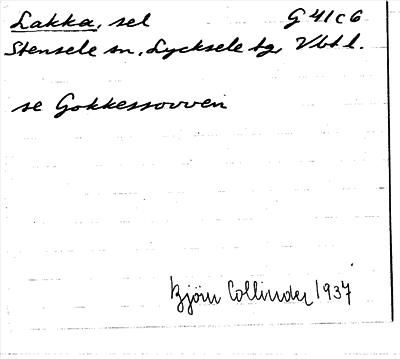 Lakka, sel G 41 c 6
Stensele sn, Lycksele tg, Vbtl.
se Gokkessovven
Björn Collinder 1937